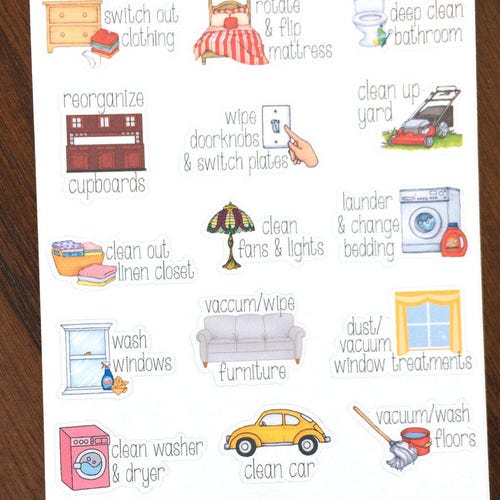 switch out
clothing
rotate
& flip
mattress
deep clean
bathroom
reorganize
cupboards
wipe
doorknobs
& switch plates
clean up
yard
clean out
linen closet
clean
fans & lights
launder
& change
bedding
wash
windows
vaccum/wipe
furniture
dust/
vacuum
window treatments
clean washer
& dryer
clean car
vacuum/wash
floors